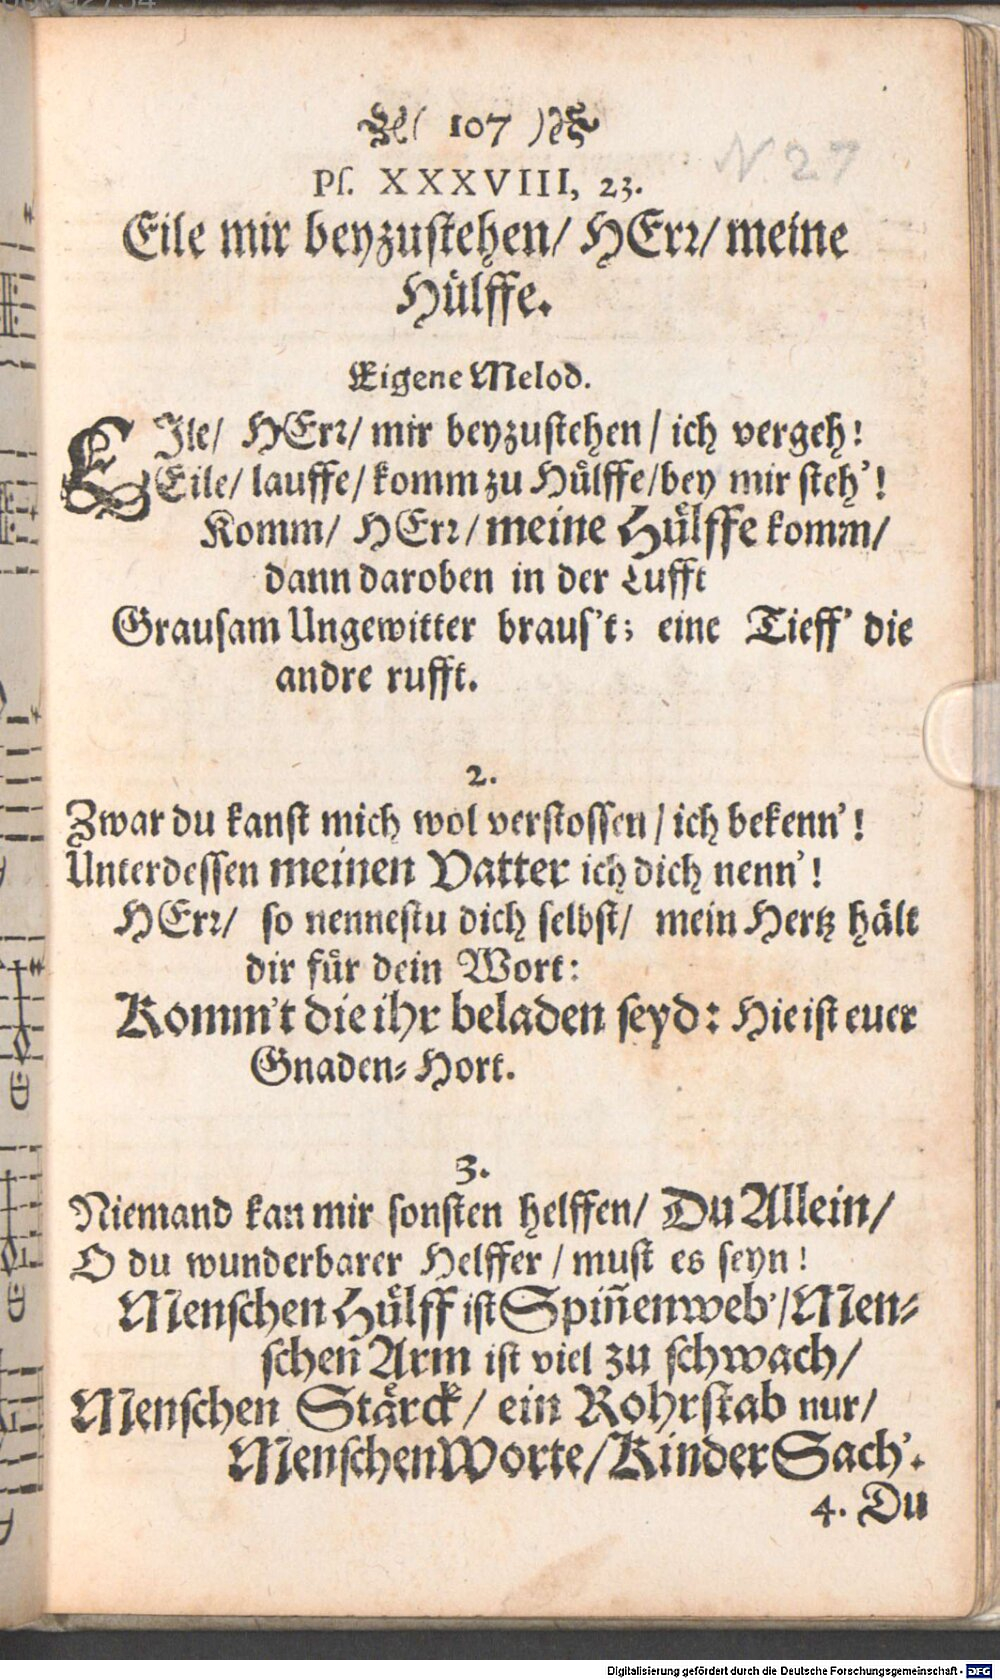 ( 107 )
N 27
Pſ. XXXVIII, 23.
Eile mir beyzuſtehen/ HErꝛ/ meine
Huͤlffe.
Eigene Melod.
EIle/ HErꝛ/ mir beyzuſtehen / ich vergeh!
Eile/ lauffe/ komm zu Huͤlffe/ bey mir ſteh'!
Komm/ HErꝛ/ meine Huͤlffe komm/
dann daroben in der Lufft
Grauſam Ungewitter brauſ't; eine Tieff' die
andre rufft.
2.
Zwar du kanſt mich wol verſtoſſen / ich bekenn'!
Unterdeſſen meinen Vatter ich dich nenn'!
HErꝛ/ ſo nenneſtu dich ſelbſt/ mein Hertz haͤlt
dir fuͤr dein Wort:
Komm't die ihr beladen ſeyd: Hie iſt euer
Gnaden⸗Hort.
3.
Niemand kan mir ſonſten helffen/ Du Allein/
O du wunderbarer Helffer / muſt es ſeyn!
Menſchen Huͤlff iſt Spin̄enweb'/ Men⸗
ſchen Arm iſt viel zu ſchwach/
Menſchen Staͤrck/ ein Rohrſtab nur/
Menſchen Worte/ Kinder Sach'.
4. Du
Digitalisierung gefördert durch die Deutsche Forschungsgemeinschaft - DFG